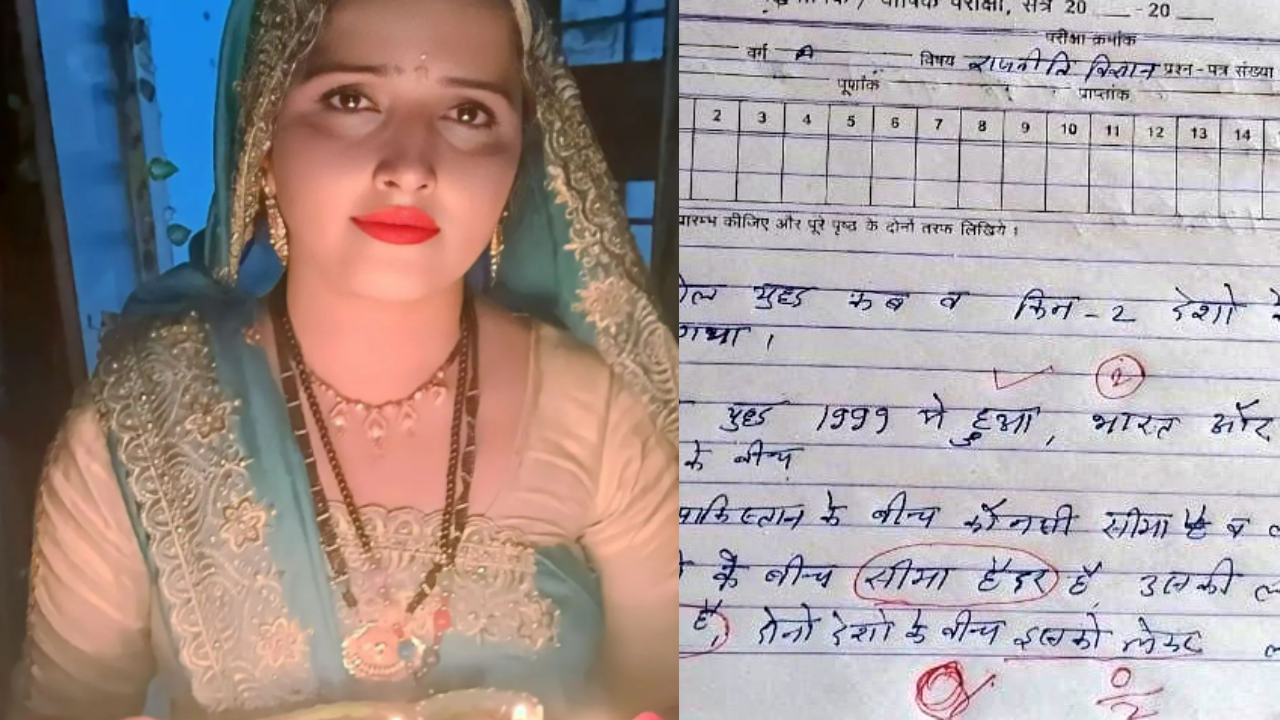 परीक्षा, सत्र 20 ___ - 20 ___
परीक्षा क्रमांक
वर्ग A विषय राजनीति विज्ञान प्रश्न - पत्र संख्या
पूर्णांक प्राप्तांक
2 3 4 5 6 7 8 9 10 11 12 13 14
प्रारम्भ कीजिए और पूरे पृष्ठ के दोनों तरफ लिखिये ।
युध्द कब व किन - 2 देशो
गया ।
2
युध्द 1999 मे हुआ, भारत और
के बीच
पाकिस्तान के बीच कौनसी सीमा है व
के बीच सीमा हैदर है, उसकी
है, दोनो देशो के बीच इसको लेकर
0/2